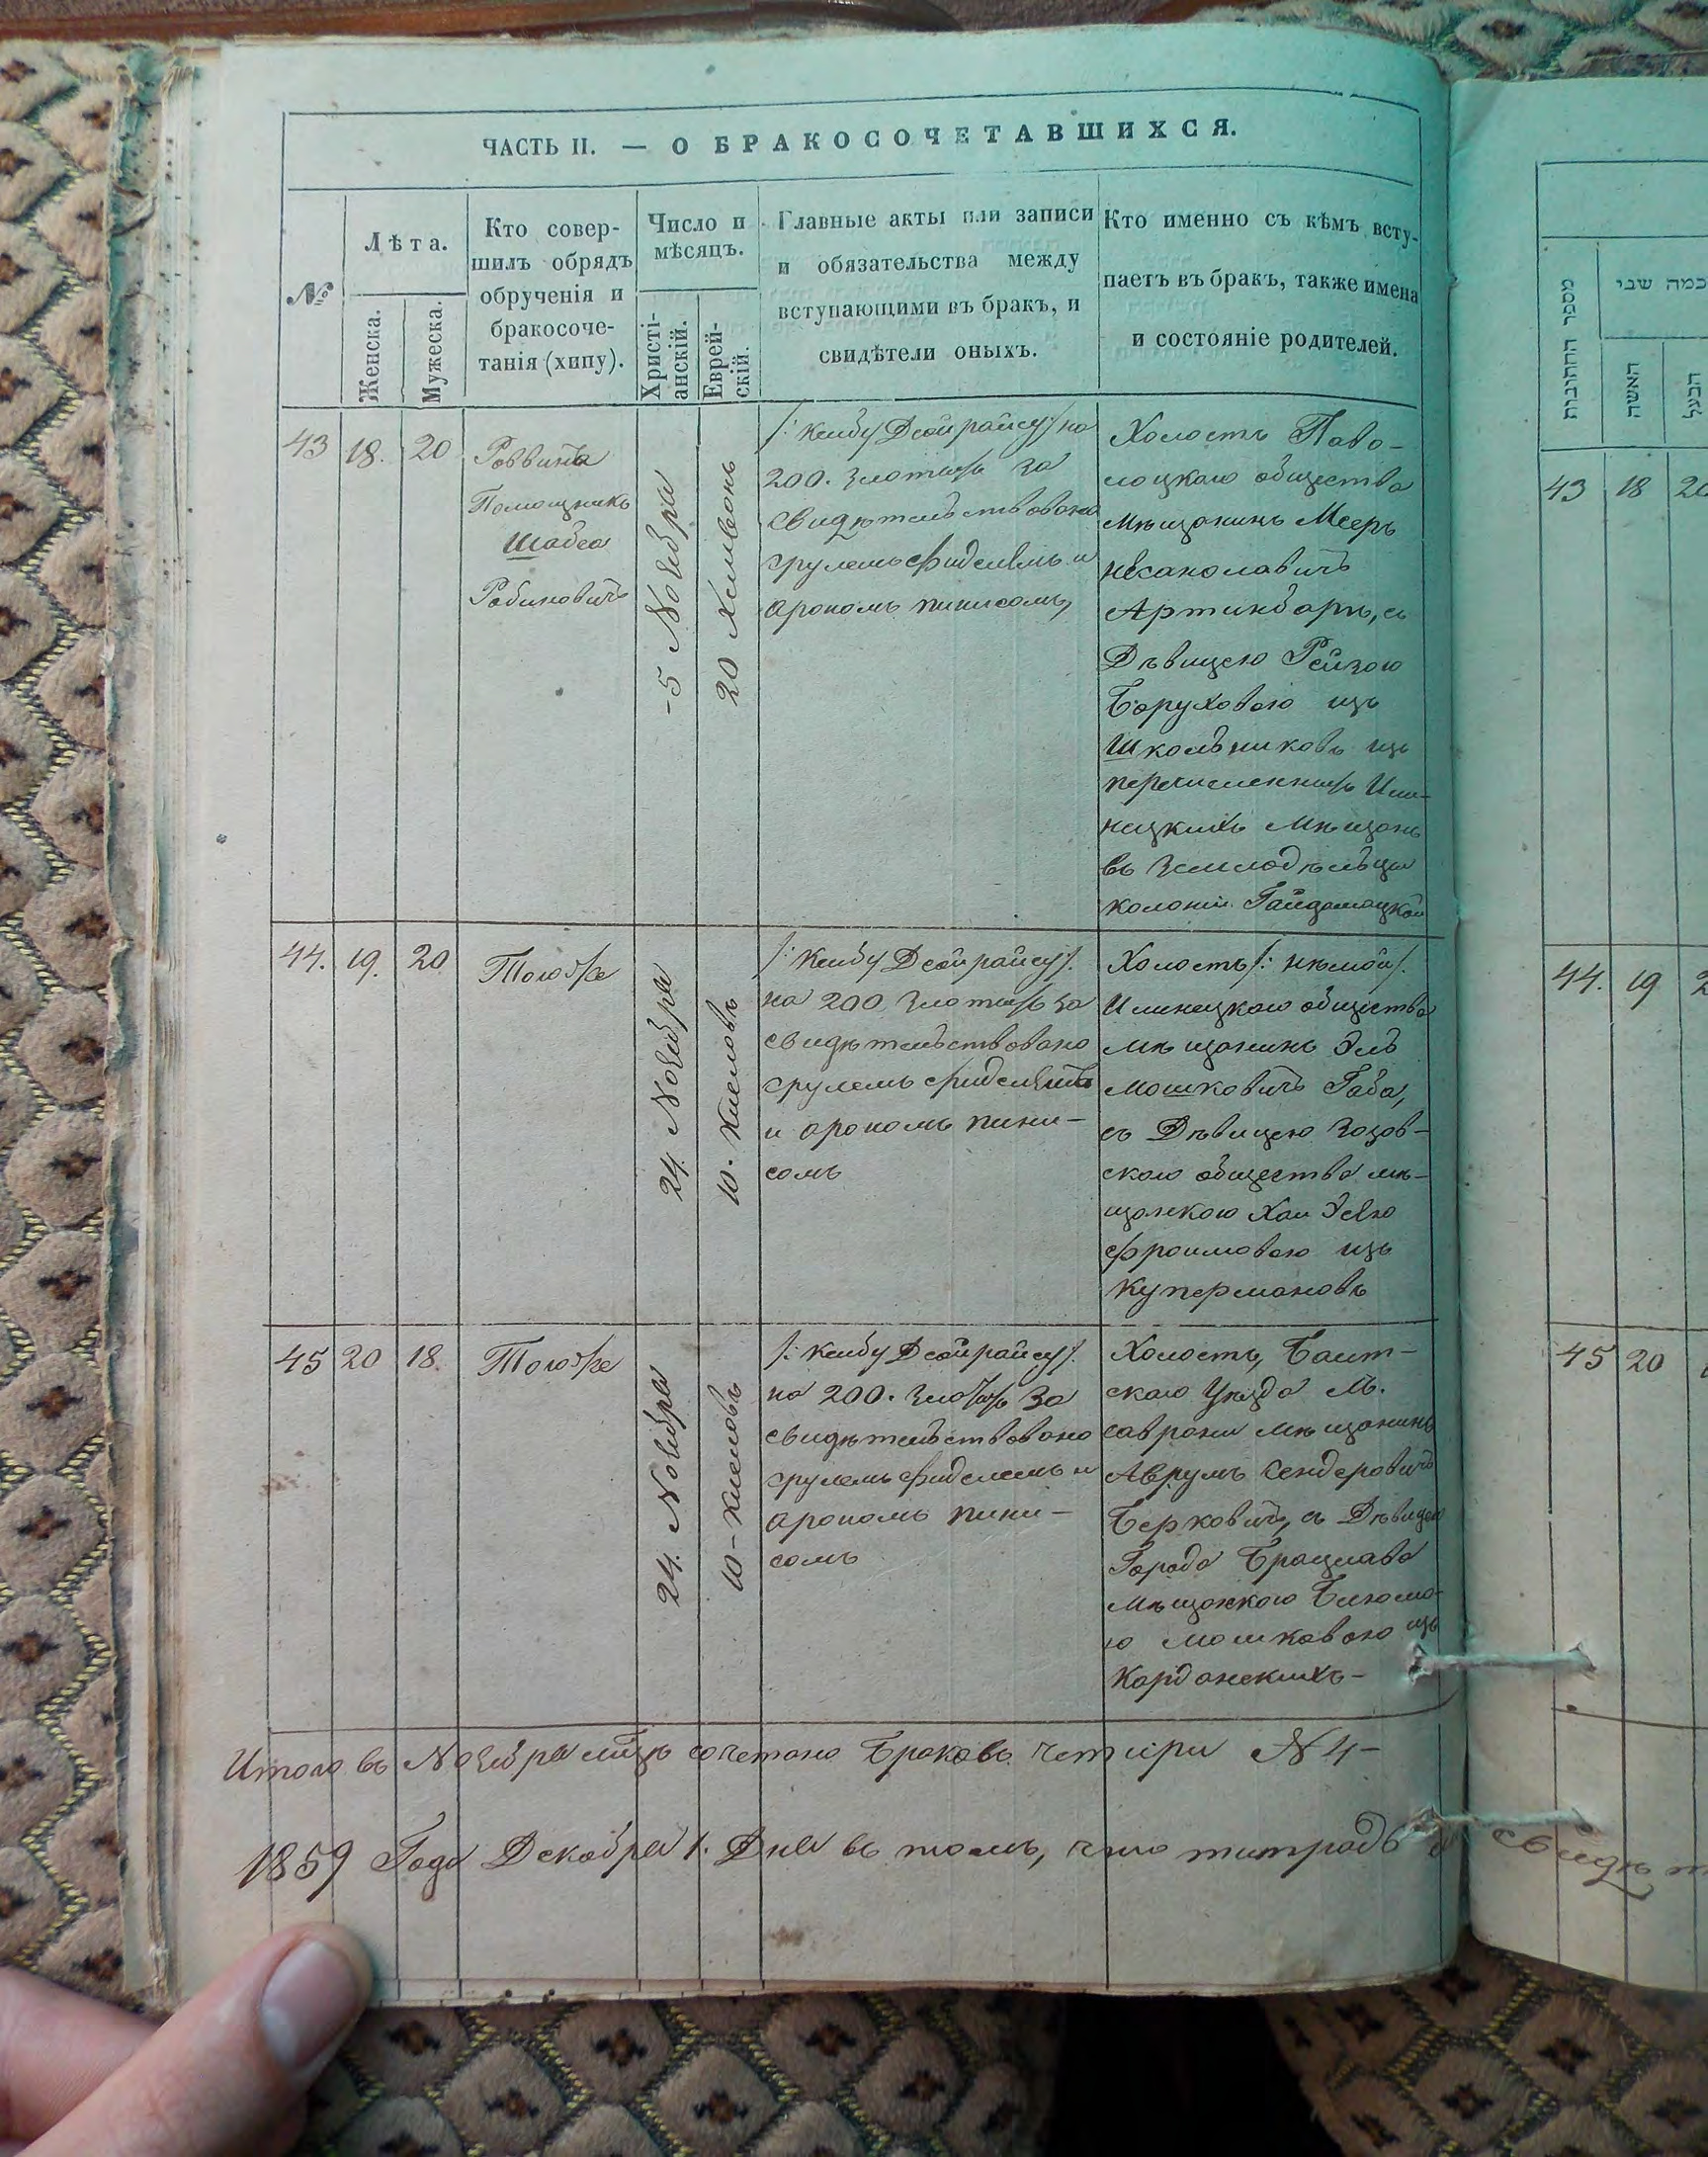 ЧАСТЬ II. — О БРАКОСОЧЕТАВШИХСЯ.
№
Лѣта.
Женска.
Мужеска.
Кто совер-
шилъ обрядъ
обрученія и
бракосоче-
танія (хипу).
Число и
мѣсяцъ.
Христі-
анскій.
Еврей-
скій.
Главные акты или записи
и обязательства между
вступающими въ бракъ, и
свидѣтели оныхъ.
Кто именно съ кѣмъ всту-
паетъ въ бракъ, также имена
и состояніе родителей.
43
18.
20
Раввина
Помощникъ
Шабса
Рабиновичъ
5 Ноября
20
на
200. злотыхъ за
свидѣтельствовано
срулемъ фиделемъ и
арономъ пинисомъ,
Холостъ Паво-
лоцкаго общества
мѣщанинъ Мееръ
Артинбаръ, съ
Дѣвицею Рейзою
Боруховою изъ
Школьниковъ изъ
перечисленныхъ Или-
нецкихъ мѣщанъ
въ земледѣльцы
колоніи Гайдамацкой
44.
19.
20
Тогоже
24. Ноября
10. Кислевъ
на 200 злотыхъ за
свидѣтельствовано
срулемъ
и арономъ пини-
сомъ
Холостъ /: нѣмой/.
Илинецкаго общества
мѣщанинъ Эль
Мошковичъ Габа,
съ Дѣвицею Зозов-
скаго общества мѣ-
щанкою Хаи
Фроимовою изъ
Купермановъ
45
20
18.
Тогоже
24. Ноября
10 - Кислевъ
на 200. за
свидѣтельствовано
срулемъ фиделемъ и
арономъ пини-
сомъ
Холостъ, Балт-
скаго уѣзда М.
саврани мѣщанинъ
Аврумъ Сендеровичъ
Берковичъ, съ Дѣвицею
Города Брацлава
мѣщанкою Блюмо-
ю мошковою изъ
Карданскихъ —
Итого въ Ноября сочетано браковъ четыри № 4 —
1859 Года Декабря 1. Дня въ томъ, что титрадь
מספר החתונות
כמה שני
האשה
הבעל
43
18
44.
19
45
20